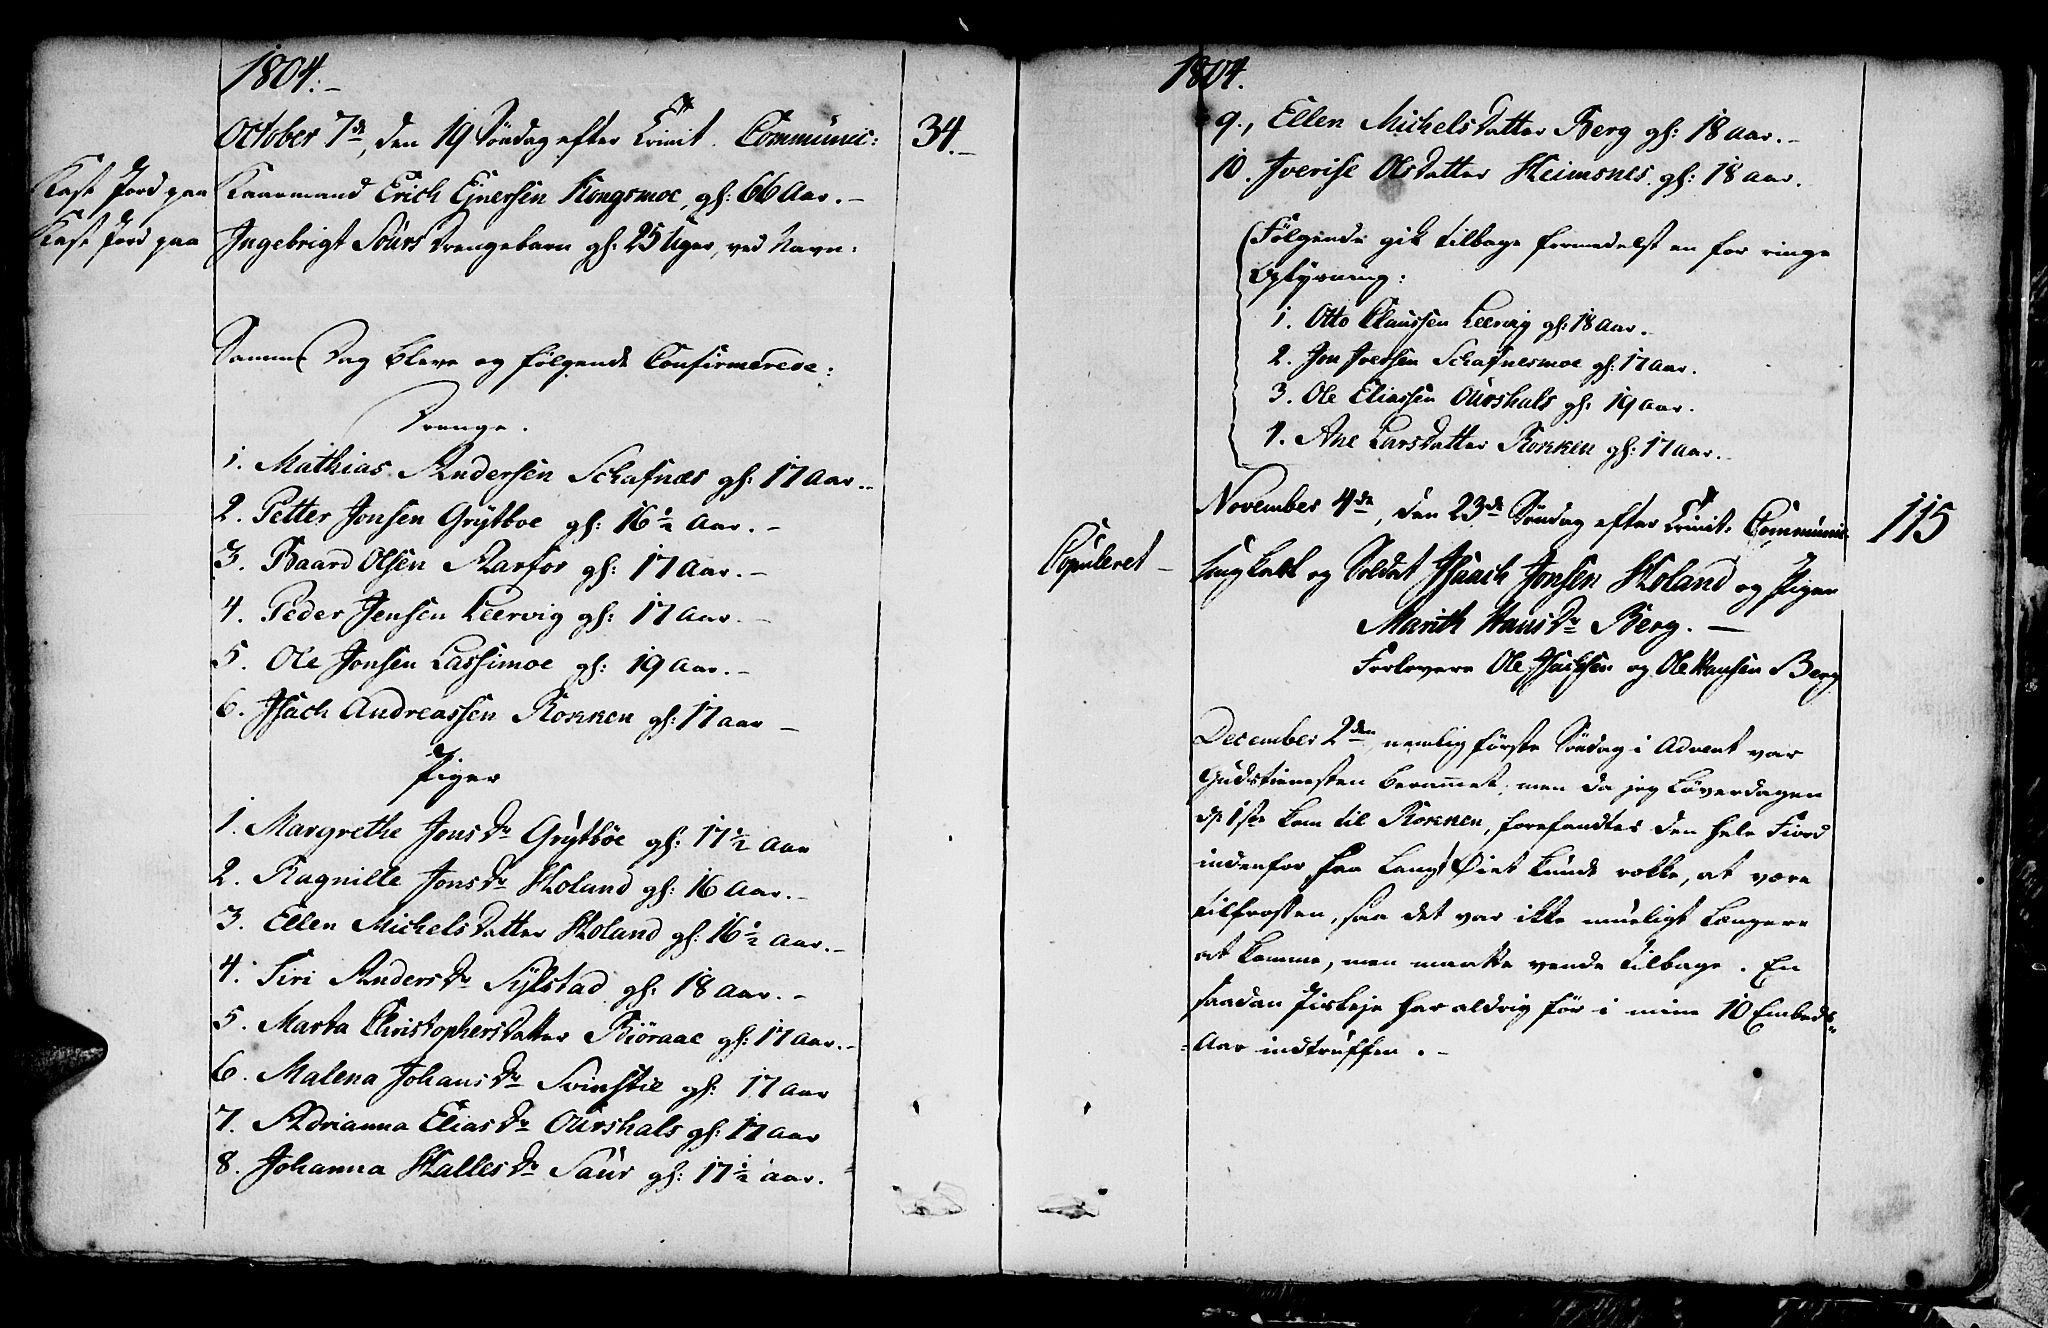 1804.-
October 7de, den 19 Søndag efter Trinit. Communic: 34.-
Kast Jord paa Kaarmand Erich Ejnersen Kongsmoe, gl: 66 Aar.-
Kast Jord paa Ingebrigt Sours Drengebarn gl: 25 Uger, ved Navn:
Samme Dag bleve og følgende Confirmerede:
Drenge.
1. Mathias Andersen Schafnæs gl: 17 Aar.-
2. Petter Jonsen Grytboe gl: 16½ Aar.-
3. Baard Olsen Aarfor gl: 17 Aar.-
4. Peder Jensen Leervig gl: 17 Aar.-
5. Ole Jonsen Lassimoe gl: 19 Aar.-
6. Isach Andreassen Rokken gl: 17 Aar -
Piger
1. Margrethe Jons Dr Grytböe gl: 17½ Aar
2. Ragnille Jons Dr Holand gl: 16 Aar.-
3. Ellen Michels Datter Holand gl: 16½ Aar.-
4. Siri Anders Dr Sylstad gl: 18 Aar.-
5. Marta Christophers Datter Biöraae gl: 17 Aar.-
6. Malena Johans Dr Svinstie gl: 17 Aar
7. Adrianna Elias Dr Ourshals gl: 17 Aar
8. Johanna Halles Dr Saur gl: 17½ Aar.
1804.
9., Ellen Michels Datter Berg gl: 18 Aar.-
10. Iverise Ols Datter Heimsnes gl: 18 Aar.
Følgende gik tilbage formedelst en for ringe
Oplysning:
1. Otto Claussen Leervig gl: 18 Aar.-
2. Jon Iversen Schafnesmoe gl: 17 Aar.
3. Ole Eliassen Ourshals gl: 19 Aar.
1. Ane Lars Datter Rokken gl: 17 Aar.-
November 4de, den 23de Søndag efter Trinit: Communic 115
Copuleret - Ungkarl og Soldat Isaach Jonsen Holand og Pigen
Marith Hans Dr Berg.-
Forlovere Ole Isachsen og Ole Hansen Berg
December 2den, nemlig første Søndag i Advent var
Gudstienesten berammet, men da jeg Løverdagen
d 1ste kom til Rokken, forefandtes den hele Fiord
indenfor saa langt Øiet kunde række, at være
tilfrossen, saa det var ikke mueligt længere
at komme, men maatte vende tilbage. En
saadan har aldrig før i mine 10 Embeds-
-Aar indtruffen.-